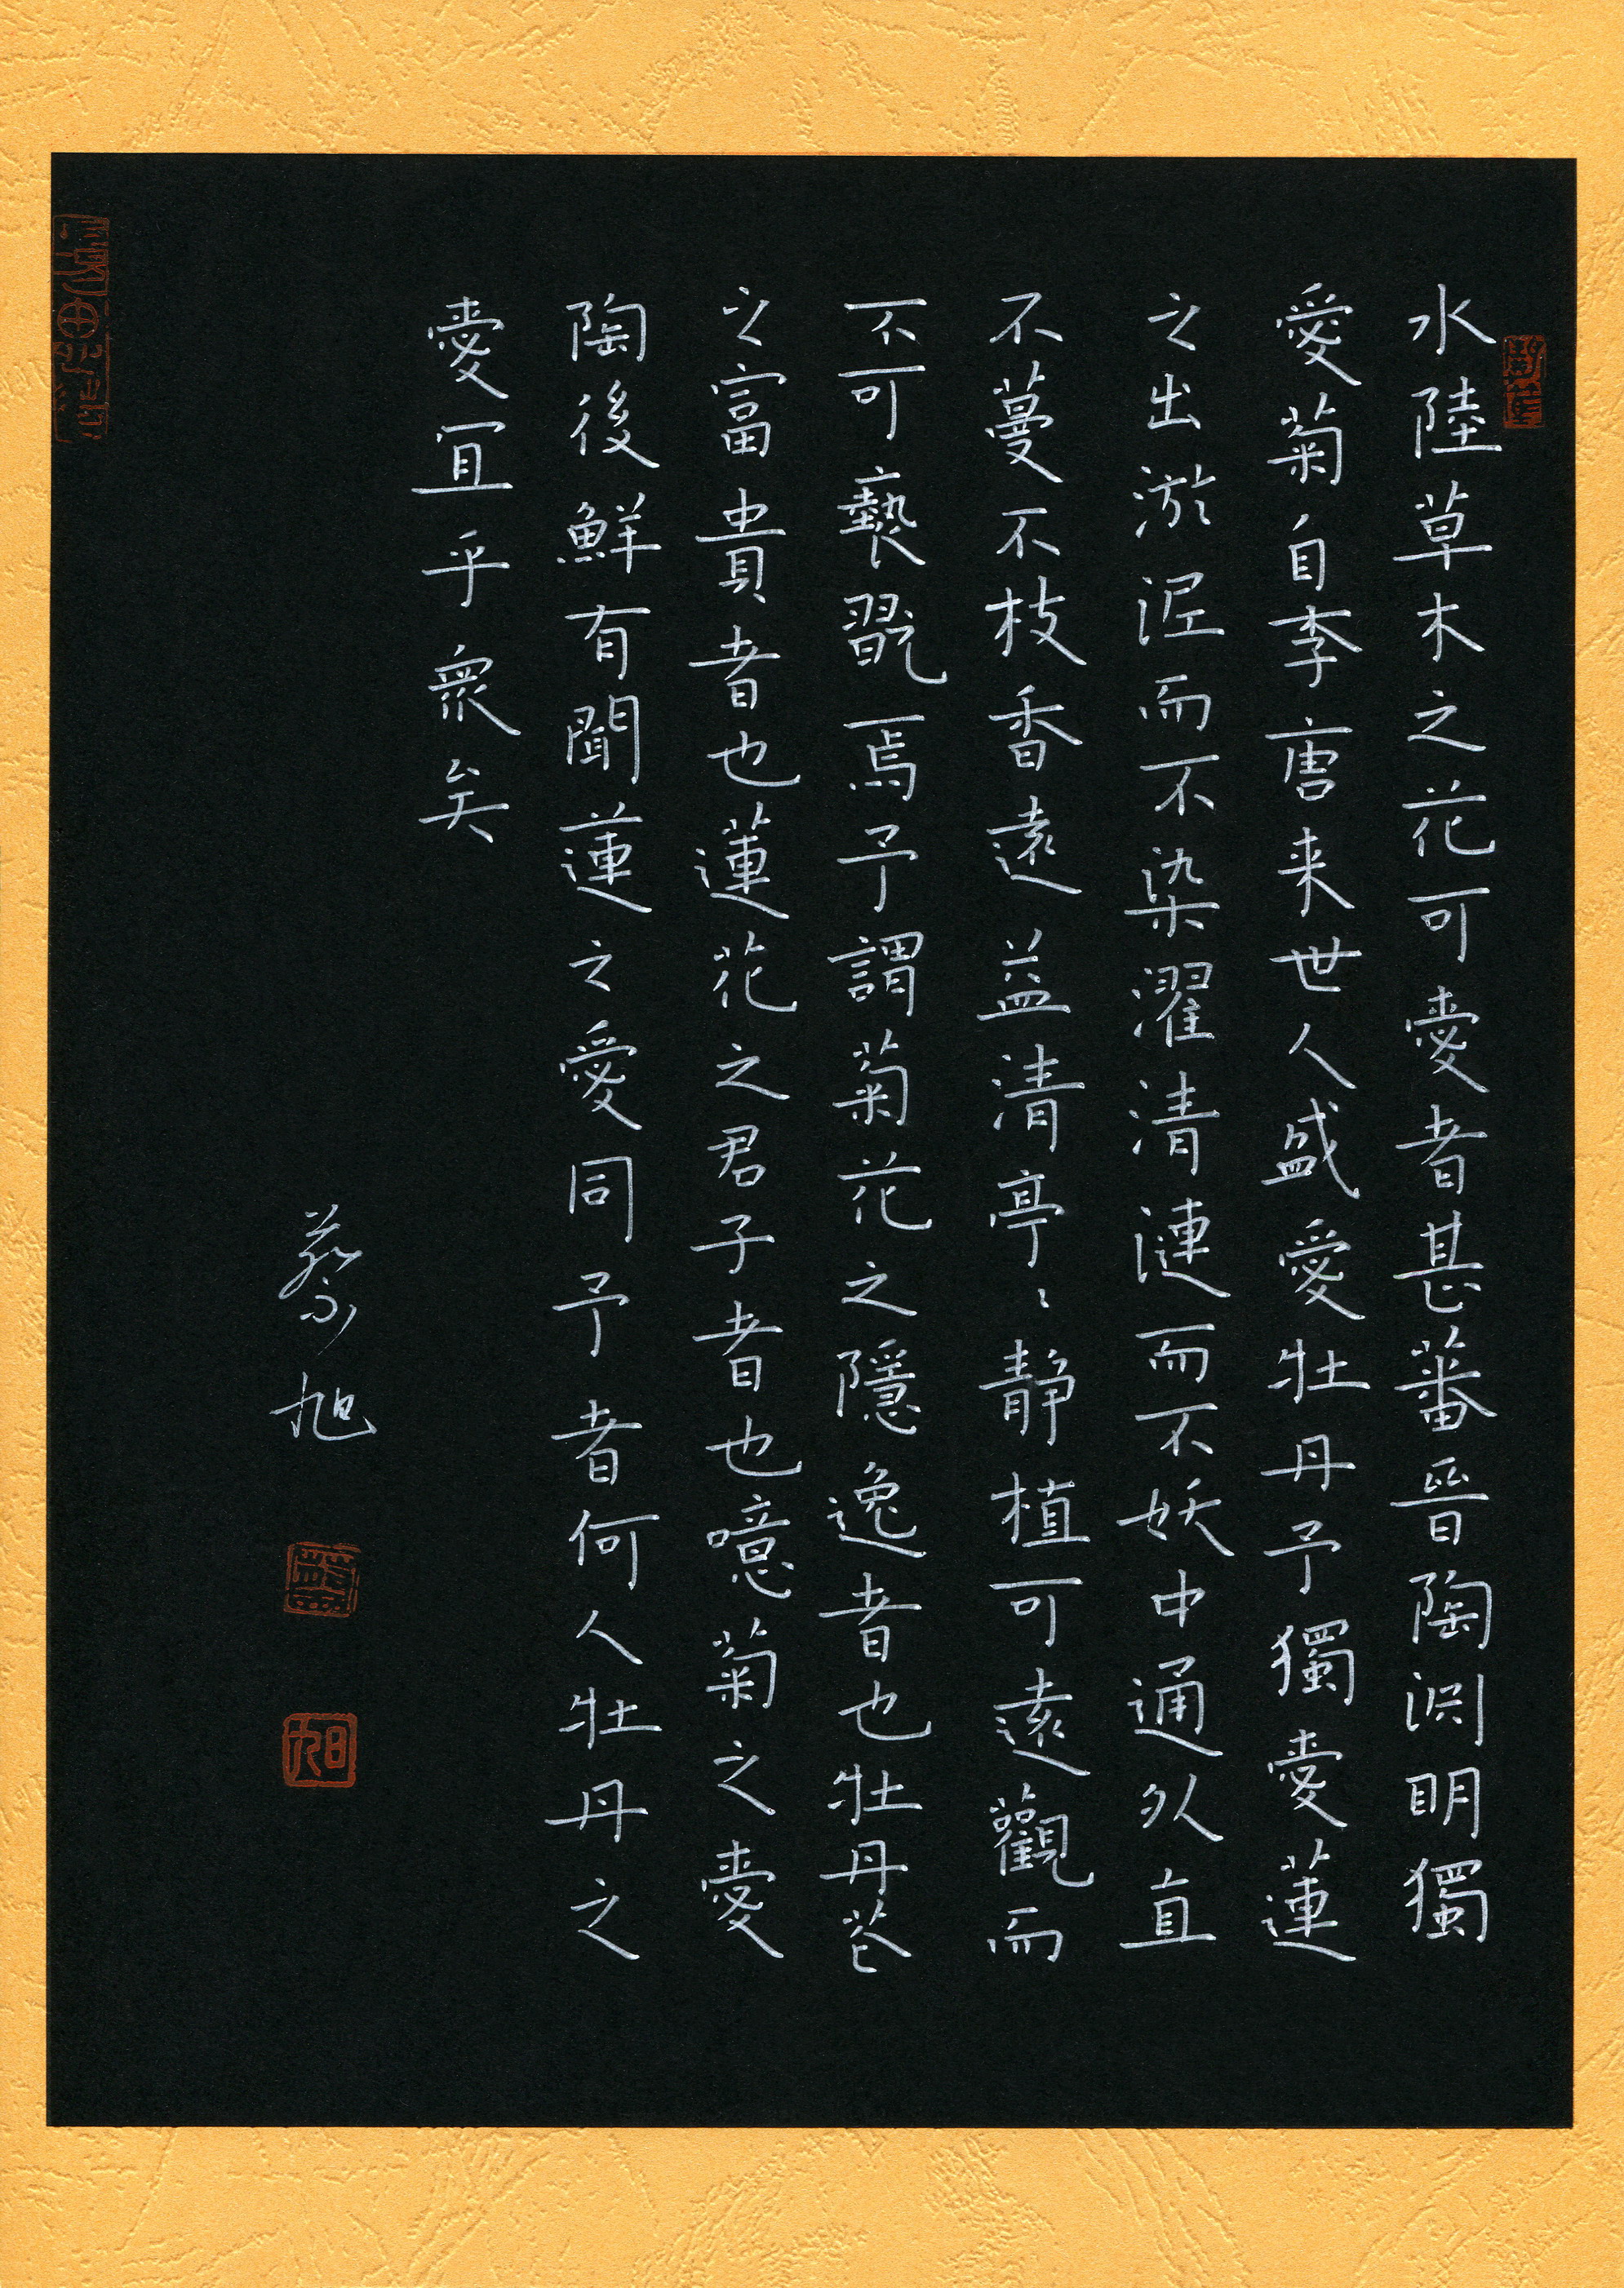 水陸草木之花可愛者甚蕃晉陶渊明獨
愛菊自李唐来世人盛愛牡丹予獨愛蓮
之出淤泥而不染濯清漣而不妖中通外直
不蔓不枝香遠益清亭〻静植可遠觀而
不可褻翫焉予謂菊花之隱逸者也牡丹花
之富貴者也蓮花之君子者也噫菊之愛
陶後鮮有聞蓮之愛同予者何人牡丹之
愛宜乎衆矣
蔡旭
旭